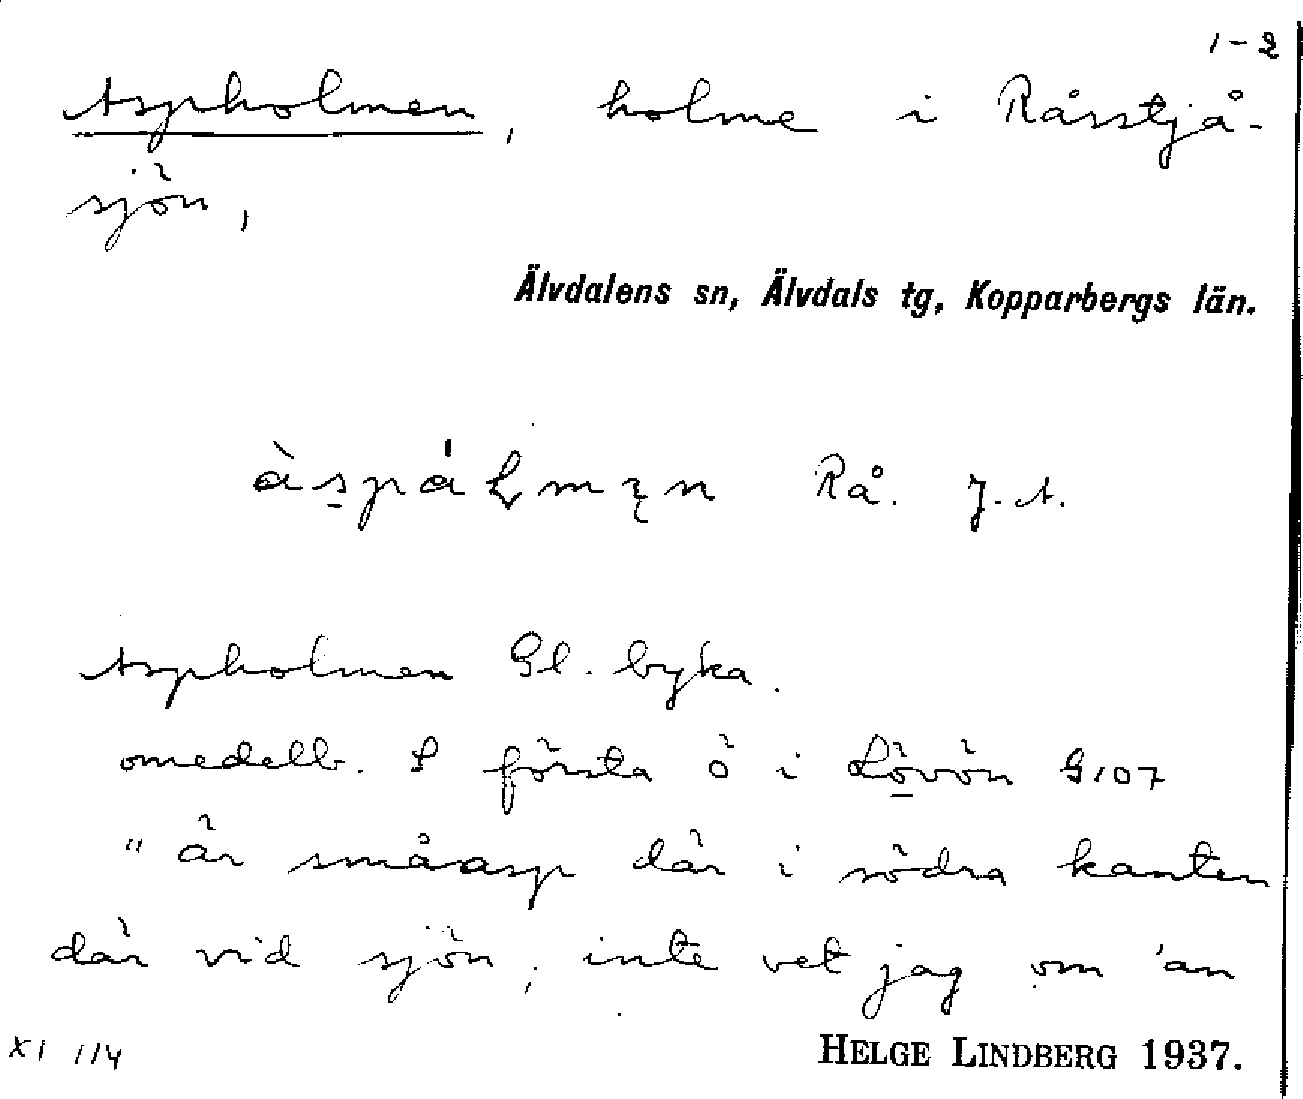 1-2
Aspholmen, holme i Råsstjå-
sjön,
Älvdalens sn, Älvdals tg, Kopparbergs län.
Rå. J. A.
Aspholmen Gl. byka.
omedelb. S första ö i Lövön G107
"är småasp där i södra kanten
där vid sjön, inte vet jag om 'an
XI 114
HELGE LINDBERG 1937.